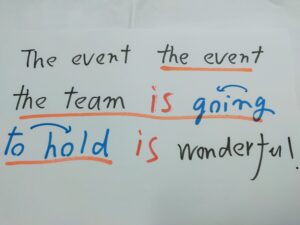 The event the event
the team is going
to hold is wonderful.